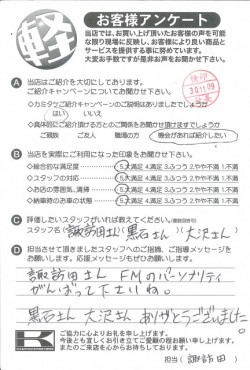 軽
お客様アンケート
当店では、お買い上げ頂いたお客様の声を可能
な限り現場に反映し、お客様により良い商品と
サービスを提供する事に努めています。
大変お手数ですが是非お声をお聞かせ下さい。
検印
30.11.09
A 当店はご紹介を大切にしております。
ご紹介キャンペーンについてお聞かせ下さい。
◇カミタケご紹介キャンペーンのご説明はありましたでしょうか
はい いいえ
◇具体的にご紹介頂ける方とのご関係をお聞かせ頂けますでしょうか
ご親族 ご友人 職場の方 機会があれば紹介したい
B 当店を実際にご利用になった印象をお聞かせ下さい。
◇総合的な満足度 5.大満足 4.満足 3.ふつう 2.やや不満 1.不満
◇スタッフの対応 5.大満足 4.満足 3.ふつう 2.やや不満 1.不満
◇お店の雰囲気、清掃 5.大満足 4.満足 3.ふつう 2.やや不満 1.不満
◇納車時のお車の状態 5.大満足 4.満足 3.ふつう 2.やや不満 1.不満
C 評価したいスタッフがいれば教えてください。(複数回答可)
スタッフ名 (諏訪田さん)(黒石さん)(大沢さん)
D 担当させて頂きましたスタッフへのご指摘、ご指導メッセージを
お願いします。応援メッセージもぜひお願いします。
諏訪田さん FMのパーソナリティ
がんばって下さいね。
黒石さん 大沢さん ありがとうございました。
K
ご協力に心よりお礼を申し上げます。
今後とも宜しくお引き立てご愛顧の程お願い申し上げます。
またのご来店を心からお待ちしております。
担当 (諏訪田)